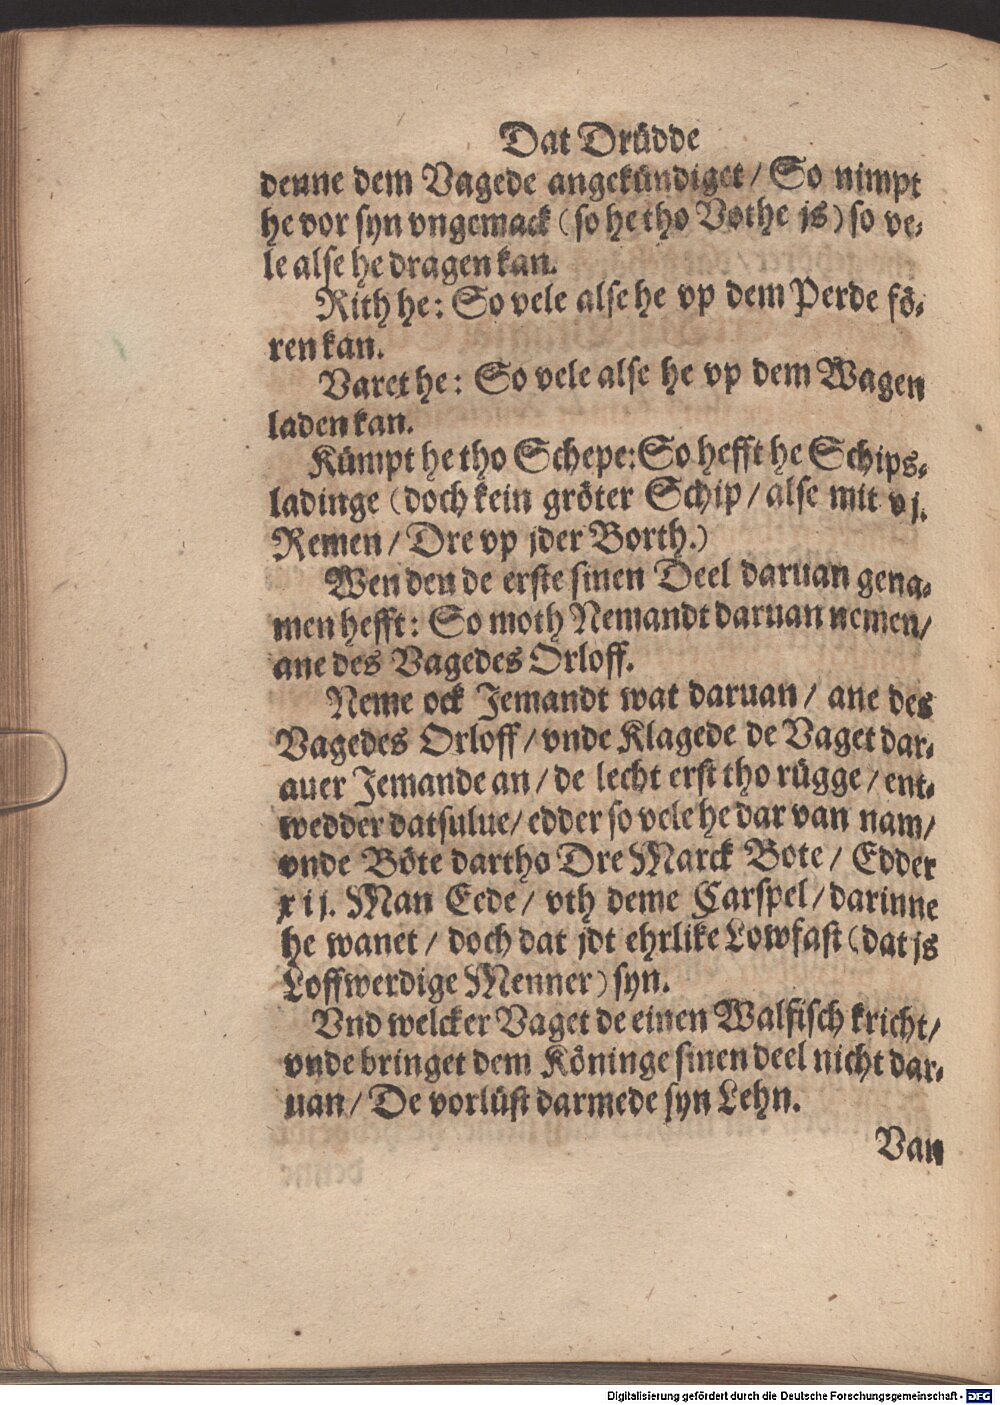 Dat Drüdde
denne dem Vagede angekündiget / So nimpt
he vor syn vngemack (so he tho Vothe js) so ve-
le alse he dragen kan.
Rith he: So vele alse he vp dem Perde fö-
ren kan.
Varet he: So vele alse he vp dem Wagen
laden kan.
Kümpt he tho Schepe: So hefft he Schips-
ladinge (doch kein gröter Schip / alse mit vj.
Remen / Dre vp jder Borth.)
Wen den de erste sinen Deel daruan gena-
men hefft: So moth Nemandt daruan nemen /
ane des Vagedes Orloff.
Neme ock Jemandt wat daruan / ane des
Vagedes Orloff / vnde Klagede de Vaget dar-
auer Jemande an / de lecht erst tho rügge / ent-
wedder datsulue / edder so vele he dar van nam /
vnde Böte dartho Dre Marck Bote / Edder
xij. Man Eede / vth deme Carspel / darinne
he wanet / doch dat jdt ehrlike Lowfast (dat js
Loffwerdige Menner) syn.
Vnd welcker Vaget de einen Walfisch kricht /
vnde bringet dem Köninge sinen deel nicht dar-
uan / De vorlüst darmede syn Lehn.
Van
Digitalisierung gefördert durch die Deutsche Forschungsgemeinschaft - DFG